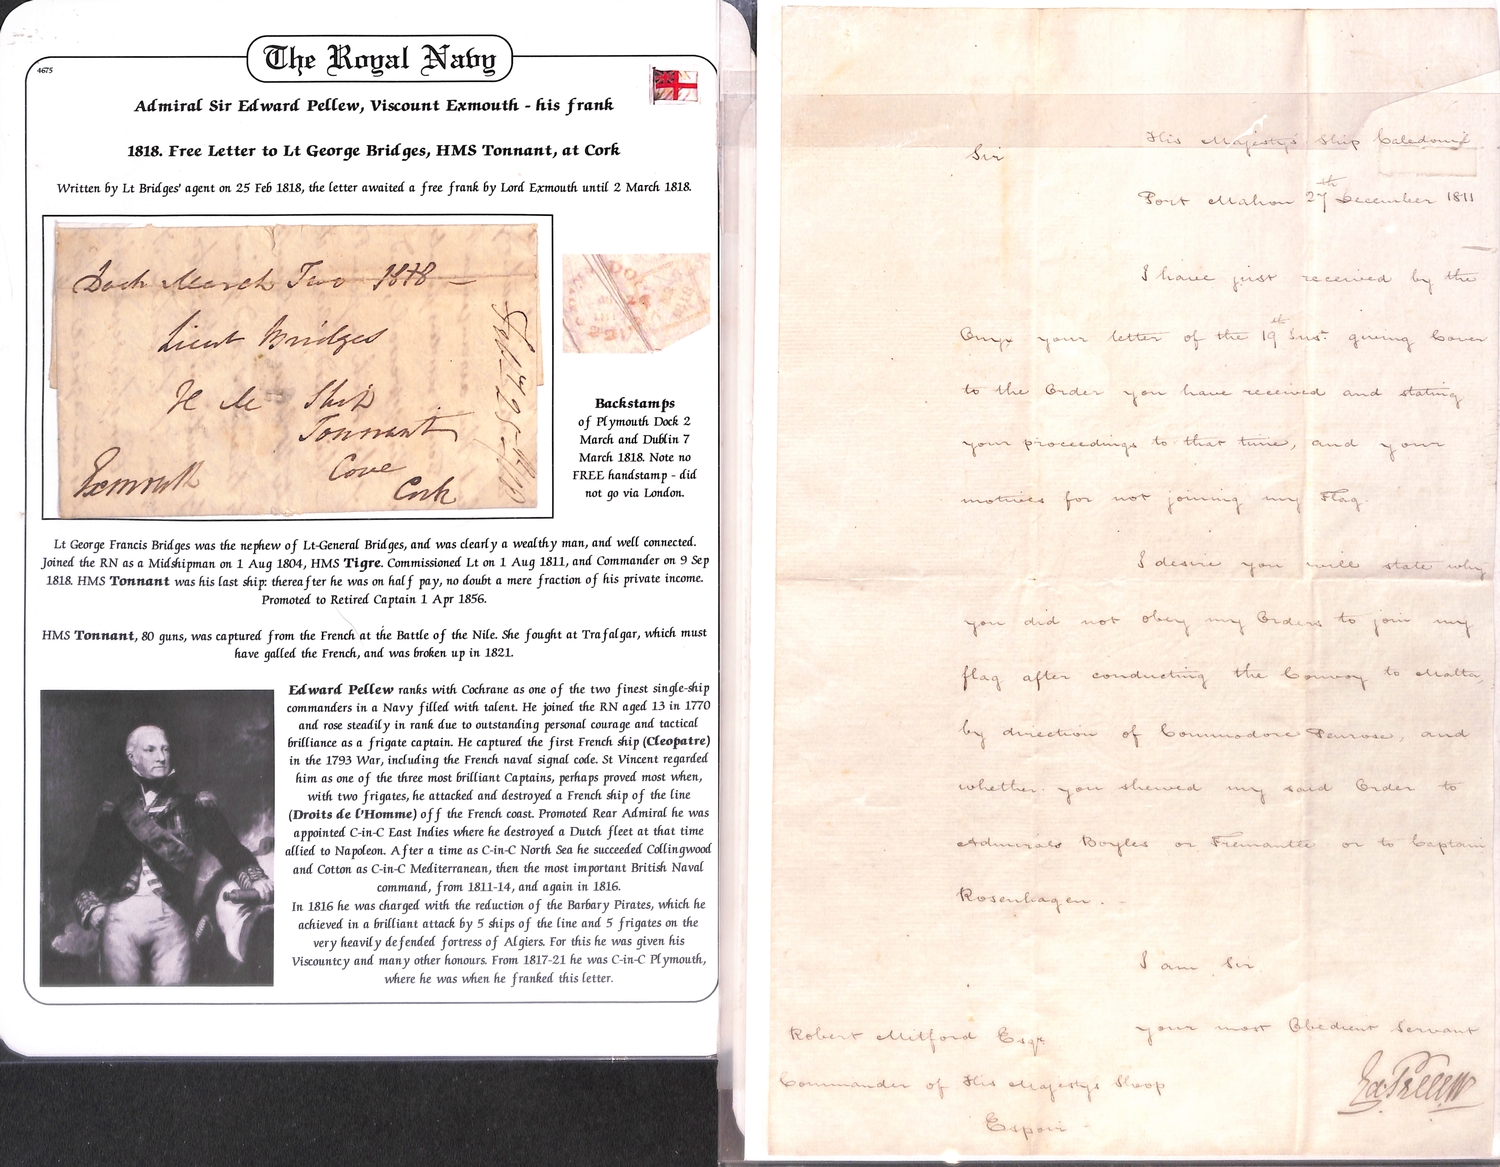 The Royal Navy
4675
Admiral Sir Edward Pellew, Viscount Exmouth - his frank
1818. Free Letter to Lt George Bridges, HMS Tonnant, at Cork
Written by Lt Bridges' agent on 25 Feb 1818, the letter awaited a free frank by Lord Exmouth until 2 March 1818.
Dock March Two 1818
Lieut Bridges
H M Ship
Tonnant
Cove
Cork
Exmouth
Backstamps
of Plymouth Dock 2
March and Dublin 7
March 1818. Note no
FREE handstamp - did
not go via London.
Lt George Francis Bridges was the nephew of Lt-General Bridges, and was clearly a wealthy man, and well connected.
Joined the RN as a Midshipman on 1 Aug 1804, HMS Tigre. Commissioned Lt on 1 Aug 1811, and Commander on 9 Sep
1818. HMS Tonnant was his last ship: thereafter he was on half pay, no doubt a mere fraction of his private income.
Promoted to Retired Captain 1 Apr 1856.
HMS Tonnant, 80 guns, was captured from the French at the Battle of the Nile. She fought at Trafalgar, which must
have galled the French, and was broken up in 1821.
Edward Pellew ranks with Cochrane as one of the two finest single-ship
commanders in a Navy filled with talent. He joined the RN aged 13 in 1770
and rose steadily in rank due to outstanding personal courage and tactical
brilliance as a frigate captain. He captured the first French ship (Cleopatre)
in the 1793 War, including the French naval signal code. St Vincent regarded
him as one of the three most brilliant Captains, perhaps proved most when,
with two frigates, he attacked and destroyed a French ship of the line
(Droits de l'Homme) off the French coast. Promoted Rear Admiral he was
appointed C-in-C East Indies where he destroyed a Dutch fleet at that time
allied to Napoleon. After a time as C-in-C North Sea he succeeded Collingwood
and Cotton as C-in-C Mediterranean, then the most important British Naval
command, from 1811-14, and again in 1816.
In 1816 he was charged with the reduction of the Barbary Pirates, which he
achieved in a brilliant attack by 5 ships of the line and 5 frigates on the
very heavily defended fortress of Algiers. For this he was given his
Viscountcy and many other honours. From 1817-21 he was C-in-C Plymouth,
where he was when he franked this letter.
His Majesty's Ship Caledonia
Sir
Port Mahon 27th December 1811
I have just received by the
Onyx your letter of the 19th Inst. giving Cover
to the Order you have received and stating
your proceedings to that time, and your
motives for not joining my Flag.
I desire you will state why
you did not obey my Orders to join my
flag after conducting the Convoy to Malta,
by direction of Commodore Penrose, and
whether you shewed my said Order to
Admirals Boyles or Fremantle or to Captain
Rosenhagen.
I am Sir
your most Obedient Servant
Robert Mitford Esqr.
Commander of His Majestys Sloop
Espoir
Ed. Pellew